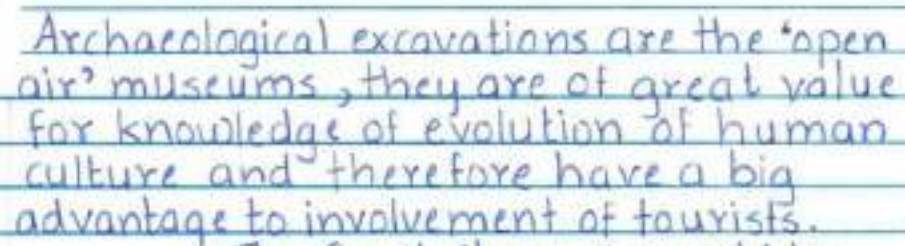 Archaeological excavations are the 'open
air' museums, they are of great value
for knowledge of evolution of human
culture and therefore have a big
advantage to involvement of tourists.